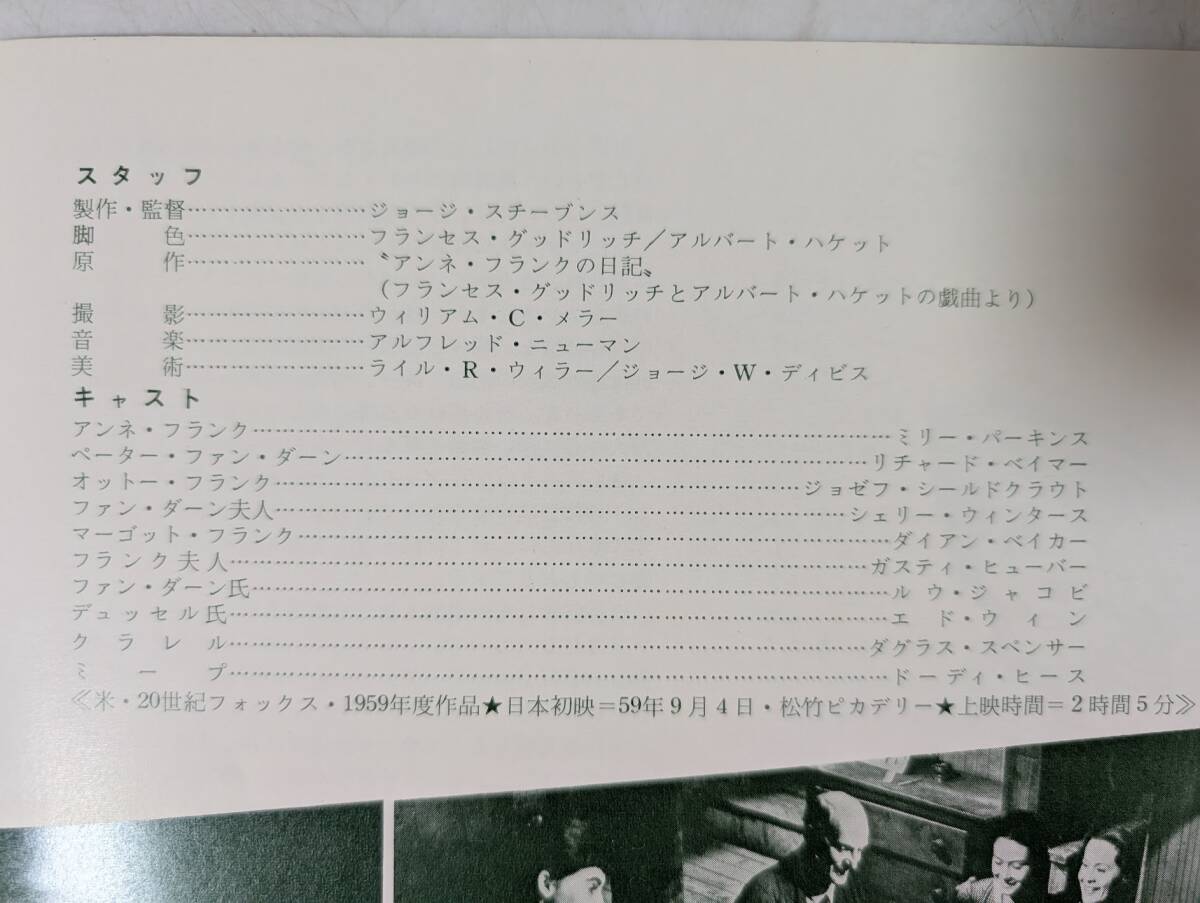 スタッフ
製作・監督……………………ジョージ・スチーブンス
脚色……………………フランセス・グッドリッチ／アルバート・ハケット
原作……………………〝アンネ・フランクの日記〟
（フランセス・グッドリッチとアルバート・ハケットの戯曲より）
撮影……………………ウィリアム・C・メラー
音楽……………………アルフレッド・ニューマン
美術……………………ライル・R・ウィラー／ジョージ・W・ディビス
キャスト
アンネ・フランク……………………ミリー・パーキンス
ペーター・ファン・ダーン……………………リチャード・ベイマー
オットー・フランク……………………ジョゼフ・シールドクラウト
ファン・ダーン夫人……………………シェリー・ウィンタース
マーゴット・フランク……………………ダイアン・ベイカー
フランク夫人……………………ガスティ・ヒューバー
ファン・ダーン氏……………………ルウ・ジャコビ
デュッセル氏……………………エド・ウィン
クラレル……………………ダグラス・スペンサー
ミープ……………………ドーディ・ヒース
≪米・20世紀フォックス・1959年度作品★日本初映＝59年9月4日・松竹ピカデリー★上映時間＝2時間5分≫